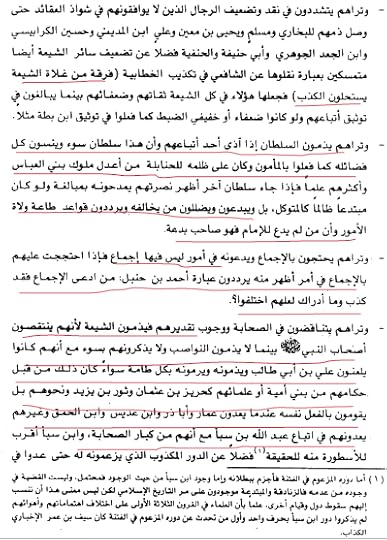 - وتراهم يتشددون في نقد وتضعيف الرجال الذين لا يوافقونهم في شواذ العقائد حتى
وصل ذمهم للبخاري ومسلم ويحيى بن معين وعلي ابن المديني وحسين الكرابيسي
وابن الجعد الجوهري وأبي حنيفة والحنفية فضلاً عن تضعيف سائر الشيعة أيضا
متمسكين بعبارة نقلوها عن الشافعي في تكذيب الخطابية (فرقة من غلاة الشيعة
يستحلون الكذب) فجعلها هؤلاء في كل الشيعة ثقاتهم وضعفائهم بينما يبالغون في
توثيق أتباعهم ولو كانوا ضعفاء أو خفيفي الضبط كما فعلوا في توثيق ابن بطة مثلاً.
- وتراهم يذمون السلطان إذا آذى أحد أتباعهم وأن هذا سلطان سوء وينسون كل
فضائله كما فعلوا بالمأمون وكان على ظلمه للحنابلة من أعدل ملوك بني العباس
وأكثرهم علماً فإذا جاء سلطان آخر أظهر نصرتهم يمدحونه بمبالغة ولو كان
مبتدعاً ظالماً كالمتوكل، بل ويبدعون ويضللون من يخالفه ويرددون قواعد طاعة ولاة
الأمور وأن من لم يدع للإمام فهو صاحب بدعة.
- وتراهم يحتجون بالإجماع ويدعونه في أمور ليس فيها إجماع فإذا احتججت عليهم
بالإجماع في أمر أظهر منه يرددون عبارة أحمد بن حنبل: من ادعى الإجماع فقد
كذب وما أدراك لعلهم اختلفوا؟.
- وتراهم يتناقضون في الصحابة ووجوب تقديرهم فيذمون الشيعة لأنهم ينتقصون
أصحاب النبي ﷺ بينما لا يذمون النواصب ولا يذكرونهم بسوء مع أنهم كانوا
يلعنون علي بن أبي طالب ويذمونه ويرمونه بكل طامة سواءً كان ذلك من قبل
حكامهم من بني أمية أو علمائهم كحريز بن عثمان وثور بن يزيد ونحوهم بل
يقومون بالفعل نفسه عندما يعدون عمار وأبا ذر وابن عديس وابن الحمق وغيرهم
يعدونهم في اتباع عبد الله بن سبأ مع أنهم من كبار الصحابة، وابن سبأ أقرب
للأسطورة منه للحقيقة(١) فضلاً عن الدور المكذوب الذي يزعمونه له حتى عدوا في
(١) أما دوره المزعوم في الفتنة فأجزم ببطلانه وإما وجود ابن سبأ من حيث الوجود فمحتمل، وليست القضية في
وجوده من عدمه فالزنادقة والمبتدعة موجودون على مر التاريخ الإسلامي لكن ليس معنى هذا أن ننسب
إليهم سقوط دول وقيام أخرى، علماً بأن العلماء في القرون الثلاثة الأولى على اختلاف اهتماماتهم وأهوائهم
لم يذكروا دور ابن سبأ بحرف واحد وأول من تحدث عن دوره المزعوم في الفتنة كان سيف بن عمر الإخباري
الكذاب.